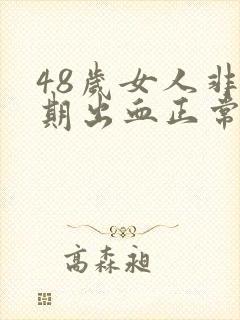 48歲女人非
期出血正常
高森昶